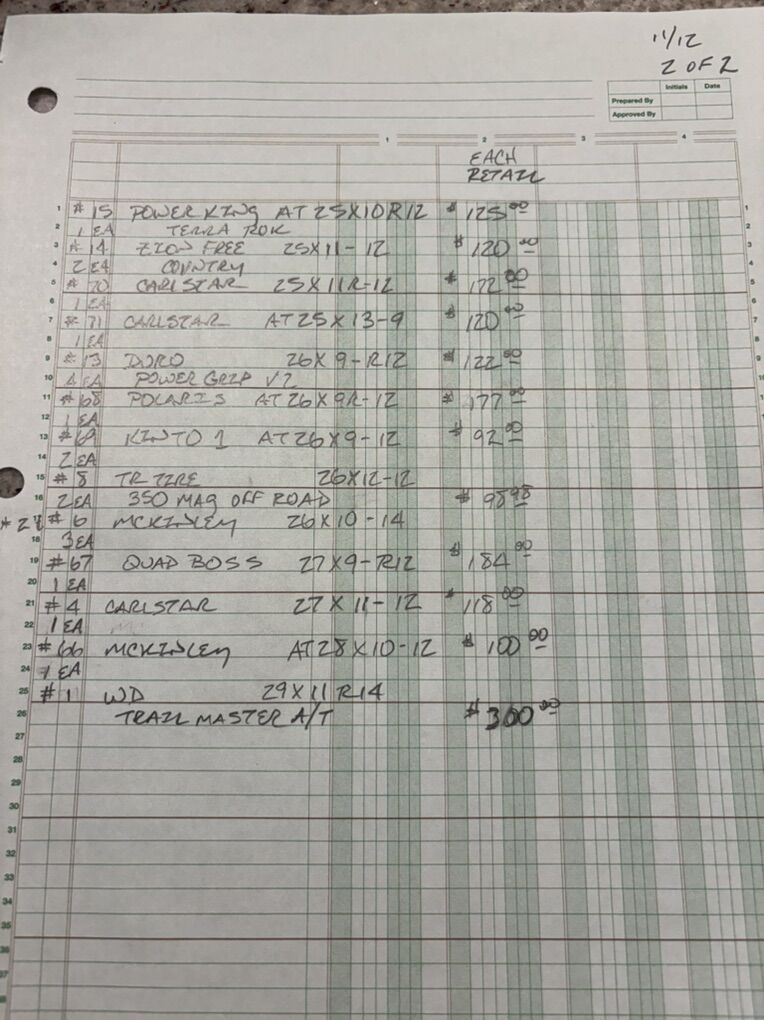 11/12
2 OF 2
Initials Date
Prepared By
Approved By
1 2 3 4
EACH
RETAIL
1 #15 POWER KING AT 25X10R12 $125.00 1
2 1 EA TERRA ROK 2
3 #14 ZION FREE 25X11-12 $120.00 3
4 2 EA COUNTRY 4
5 #70 CARLSTAR 25X11R-12 $172.00 5
6 1 EA 6
7 #71 CARLSTAR AT25X13-9 $120.00 7
8 1 EA 8
9 #13 DURO 26X9-R12 $122.00 9
10 4 EA POWER GRIP V2 10
11 #68 POLARIS AT26X9R-12 $177.00 11
12 1 EA 12
13 #69 KINTO 1 AT26X9-12 $92.00 13
14 2 EA 14
15 #8 TR TIRE 26X12-12 15
16 2 EA 350 MAG OFF ROAD $98.98 16
#6 MCKINLEY 26X10-14 17
18 3 EA 18
19 #67 QUAD BOSS 27X9-R12 $184.00 19
20 1 EA 20
21 #4 CARLSTAR 27X11-12 $118.00 21
22 1 EA 22
23 #66 MCKINLEY AT28X10-12 $100.00 23
24 1 EA 24
25 #1 WD 29X11R14 25
26 TRAIL MASTER A/T $300.00 26
27 27
28 28
29 29
30 30
31 31
32 32
33 33
34 34
35 35
36 36
37 37
38